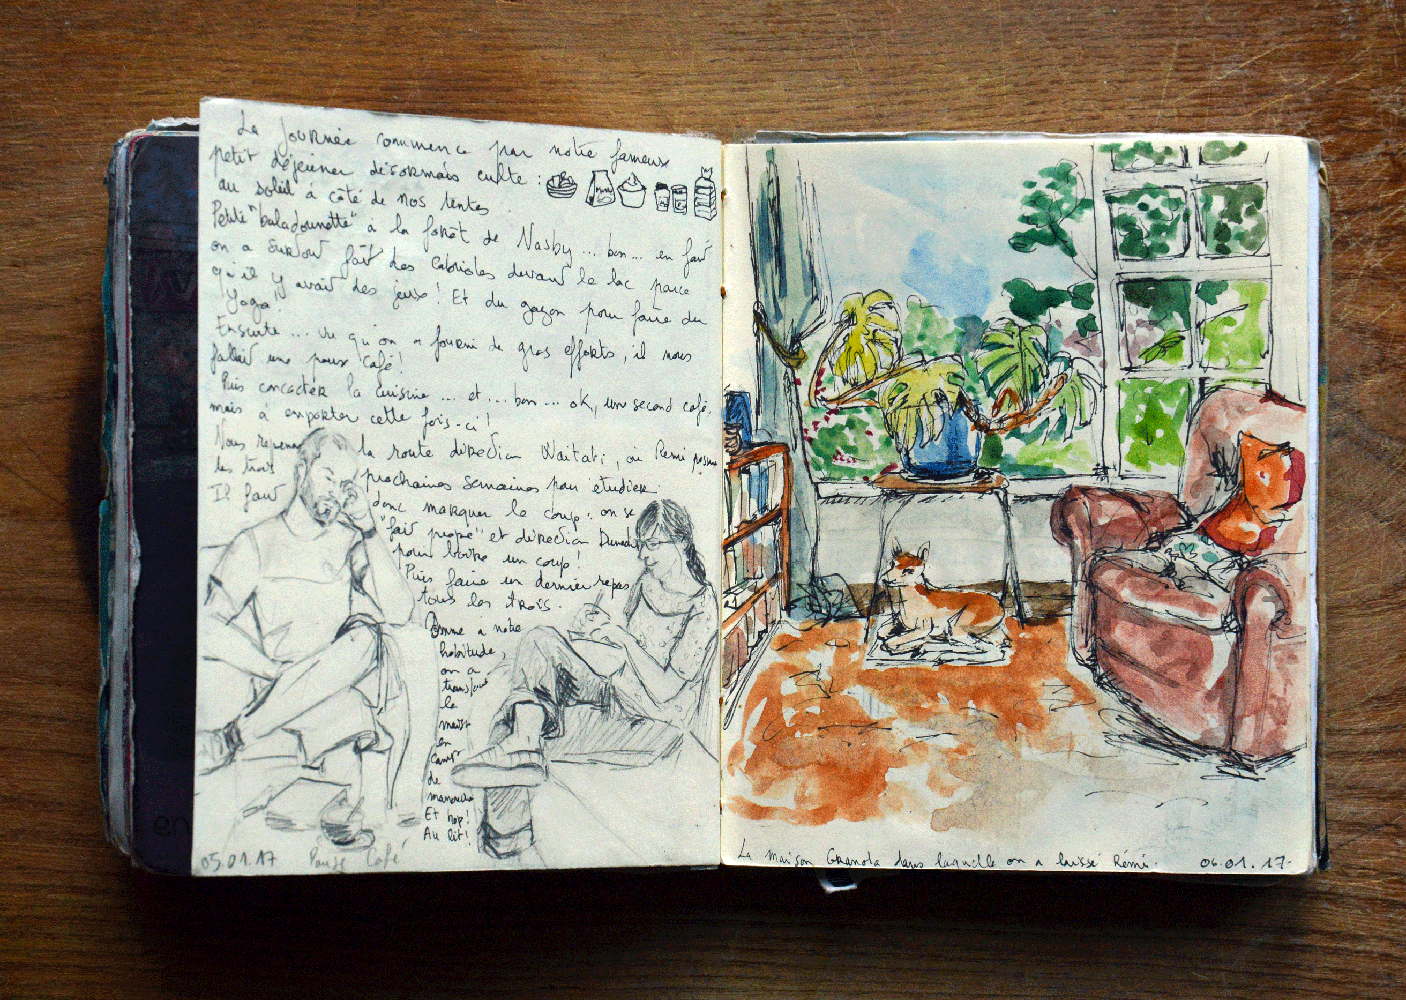 La journée commence par notre fameux
petit déjeuner désormais culte :
au soleil à côté de nos tentes.
Petite "baladounette" à la forêt de Nasby ... bon ... en fait
on a surtout fait des cabrioles devant le lac parce
qu'il y avait des jeux ! Et du gazon pour faire du
"Yoga"
Ensuite ... vu qu'on a fourni de gros efforts, il nous
fallait une paus café !
Puis la cuisine ... et ... bon ... ok, un second café,
mais à emporter cette fois-ci !
Nous la route direction Waitati, où Rémi
les trois prochaines semaines pour étudier.
Il faut donc marquer le coup : on se
"fait propre" et direction Dunedin
pour boire un coup !
Puis faire un dernier repas
tous les trois.
Comme à notre
habitude,
on a
transformé
la
maison
en
camp
de
Et hop !
Au lit !
05.01.17 Pause Café
La maison Granola dans laquelle on a laissé Rémi. 06.01.17-